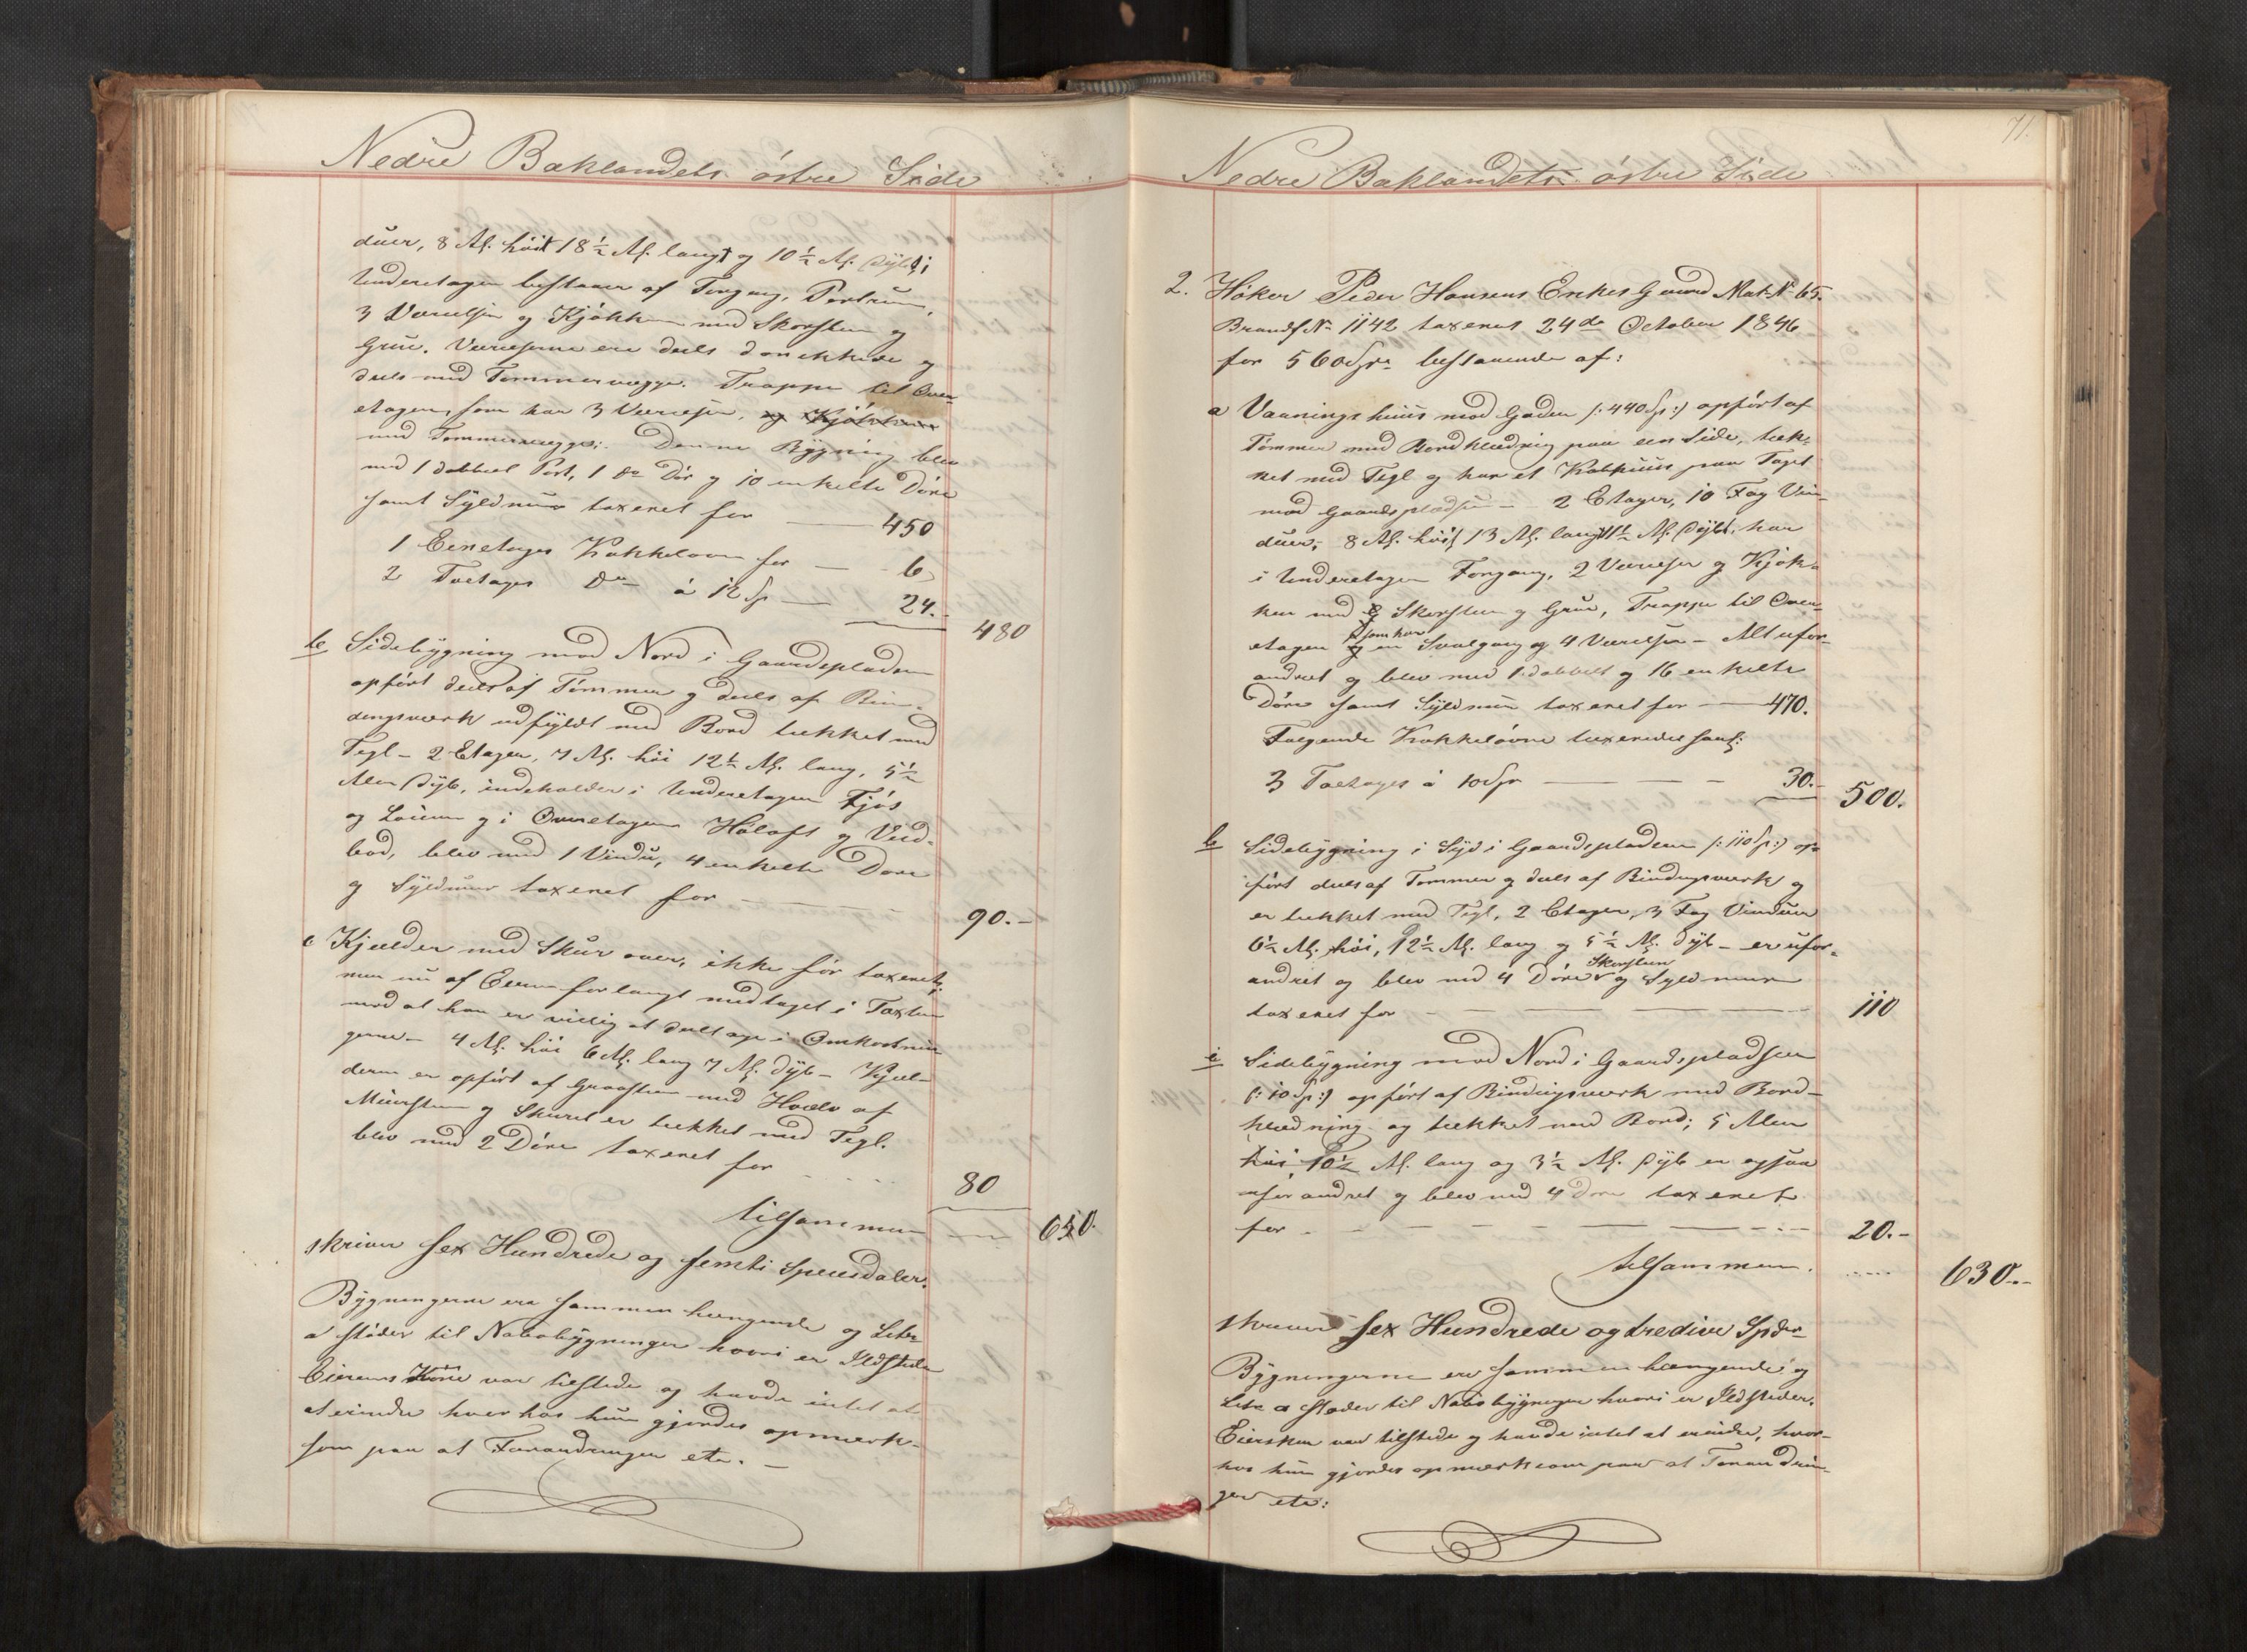 Nedre Baklandets østre Side
duer, 8 Al. høit 18½ Al. langt og 10½ Al. dybt; i
Underetagen bestaaer af Forgang, Portrum,
3 Værelser og Kjøkken med Skorsteen og
Grue. Værelserne ere deels donekkede og
deels med Tømmervægge. Trappe til Over-
etagen, som har 3 Værelser, og Kjøkken
med Tømmervægge; Denne Bygning blev
med 1 dobbelt Port, 1 do Dør og 10 enkelte Døre
samt Syldmuur taxeret for — 450
1 Eenetages Kakkelovn for — 6
2 Toetages Do à 12 Sp — 24.-
480
b Sidebygning mod Nord i Gaardspladsen
opført deels af Tømmer og deels af Bin-
dingsværk udfyldt med Bord tækket med
Tegl - 2 Etager, 7 Al. høi 12½ Al. lang, 5½
Alen dyb, indeholder i Underetagen Fjøs
og Løiern og i Overetagen Høloft og Ved-
bod, blev med 1 Vindu, 4 enkelte Døre
og Syldmuur taxeret for - - - 90.-
c Kjælder med Skuur over, ikke før taxeret,
men nu af Eieren forlangt medtaget i Taxten
mod at han er villig at deeltage i Omkostnin
gerne - 4 Al. høi 6 Al. lang 7 Al. dyb - Kjæl-
deren er opført af Graasteen med Hvælv af
Muursteen og Skuret er tækket med Tegl.
blev med 2 Døre taxeret for . . . . . 80
tilsammen 650.
skriver sex Hundrede og femti Speciesdaler.
Bygningerne ere sammenhængende og Litr
a støder til Nabobygninger hvori er Ildsteder
Eierens Kone var tilstede og havde intet at
at erindre hvorhos hun gjordes opmærk-
som paa at Forandringer etc. -
71.
Nedre Baklandets østre Side
2. Høker Peder Hansens Enkes Gaard Mat. No 65.
Brandf No 1142 taxeret 24de October 1846
for 560 Spr bestaaende af:
a Vaaningshuus mod Gaden /: 440 Sp :/ opført af
Tømmer med Bordklædnig paa een Side, tæk-
ket med Tegl og har et Kobhuus paa Taget
mod Gaardspladsen - 2 Etager, 10 Fag Vin-
duer, 8 Al. høit 13 Al. langt 11½ Al. dybt, har
i Underetagen Forgang, 2 Værelser og Kjøk-
ken med Skorsteen og Grue, Trappe til Over-
som har
etagen og en Svalgang og 4 Værelser - Alt ufor-
andret og blev med 1 dobbelt og 16 enkelte
Døre samt Syldmuur taxeret for — 470.
Følgende Kakkelovne taxeredes saal:
3 Toetages à 10 Spr — — — 30.-
500.
b Sidebygning i Syd i Gaardspladsen /: 110 Sp :/ op-
ført deels af Tømmer og deels af Bindingsværk og
er tækket med Tegl, 2 Etager, 3 Fag Vinduer
6½ Al. høi, 12½ Al. lang og 5½ Al. dyb - er ufor-
Skorsteen
andret og blev med 4 Døre og Syldmuur
taxeret for - — — — 110
c Sidebygning mod Nord i Gaardspladsen
/: 10 Sp :/ opført af Bindingsværk med Bord-
klædning og tækket med Bord; 5 Alen
høi, 10½ Al. lang og 3½ Al. dyb er ogsaa
uforandret og blev med 4 Døre taxeret
for - — — — 20.-
tilsammen. ..... 630.-
skriver sex Hundrede og tredive Spdr
Bygningerne ere sammenhængende og
Litr a støder til Nabobygninger hvori er Ildsteder.
Eiersken var tilstede og havde intet at erindre, hvor-
hos hun gjordes opmærksom paa at Forandrin-
ger etc: